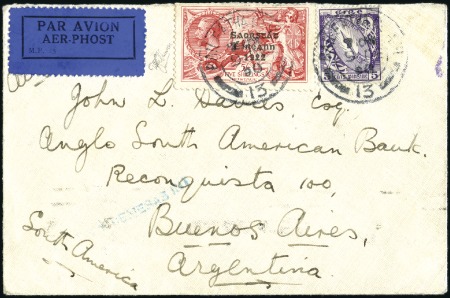 PAR AVION
AER-PHOST
Saorstát
Éireann
1922
13
13
John L. Davies, Esq.
Anglo South American Bank.
Reconquista 100,
Buenos Aires,
Argentina.
South America